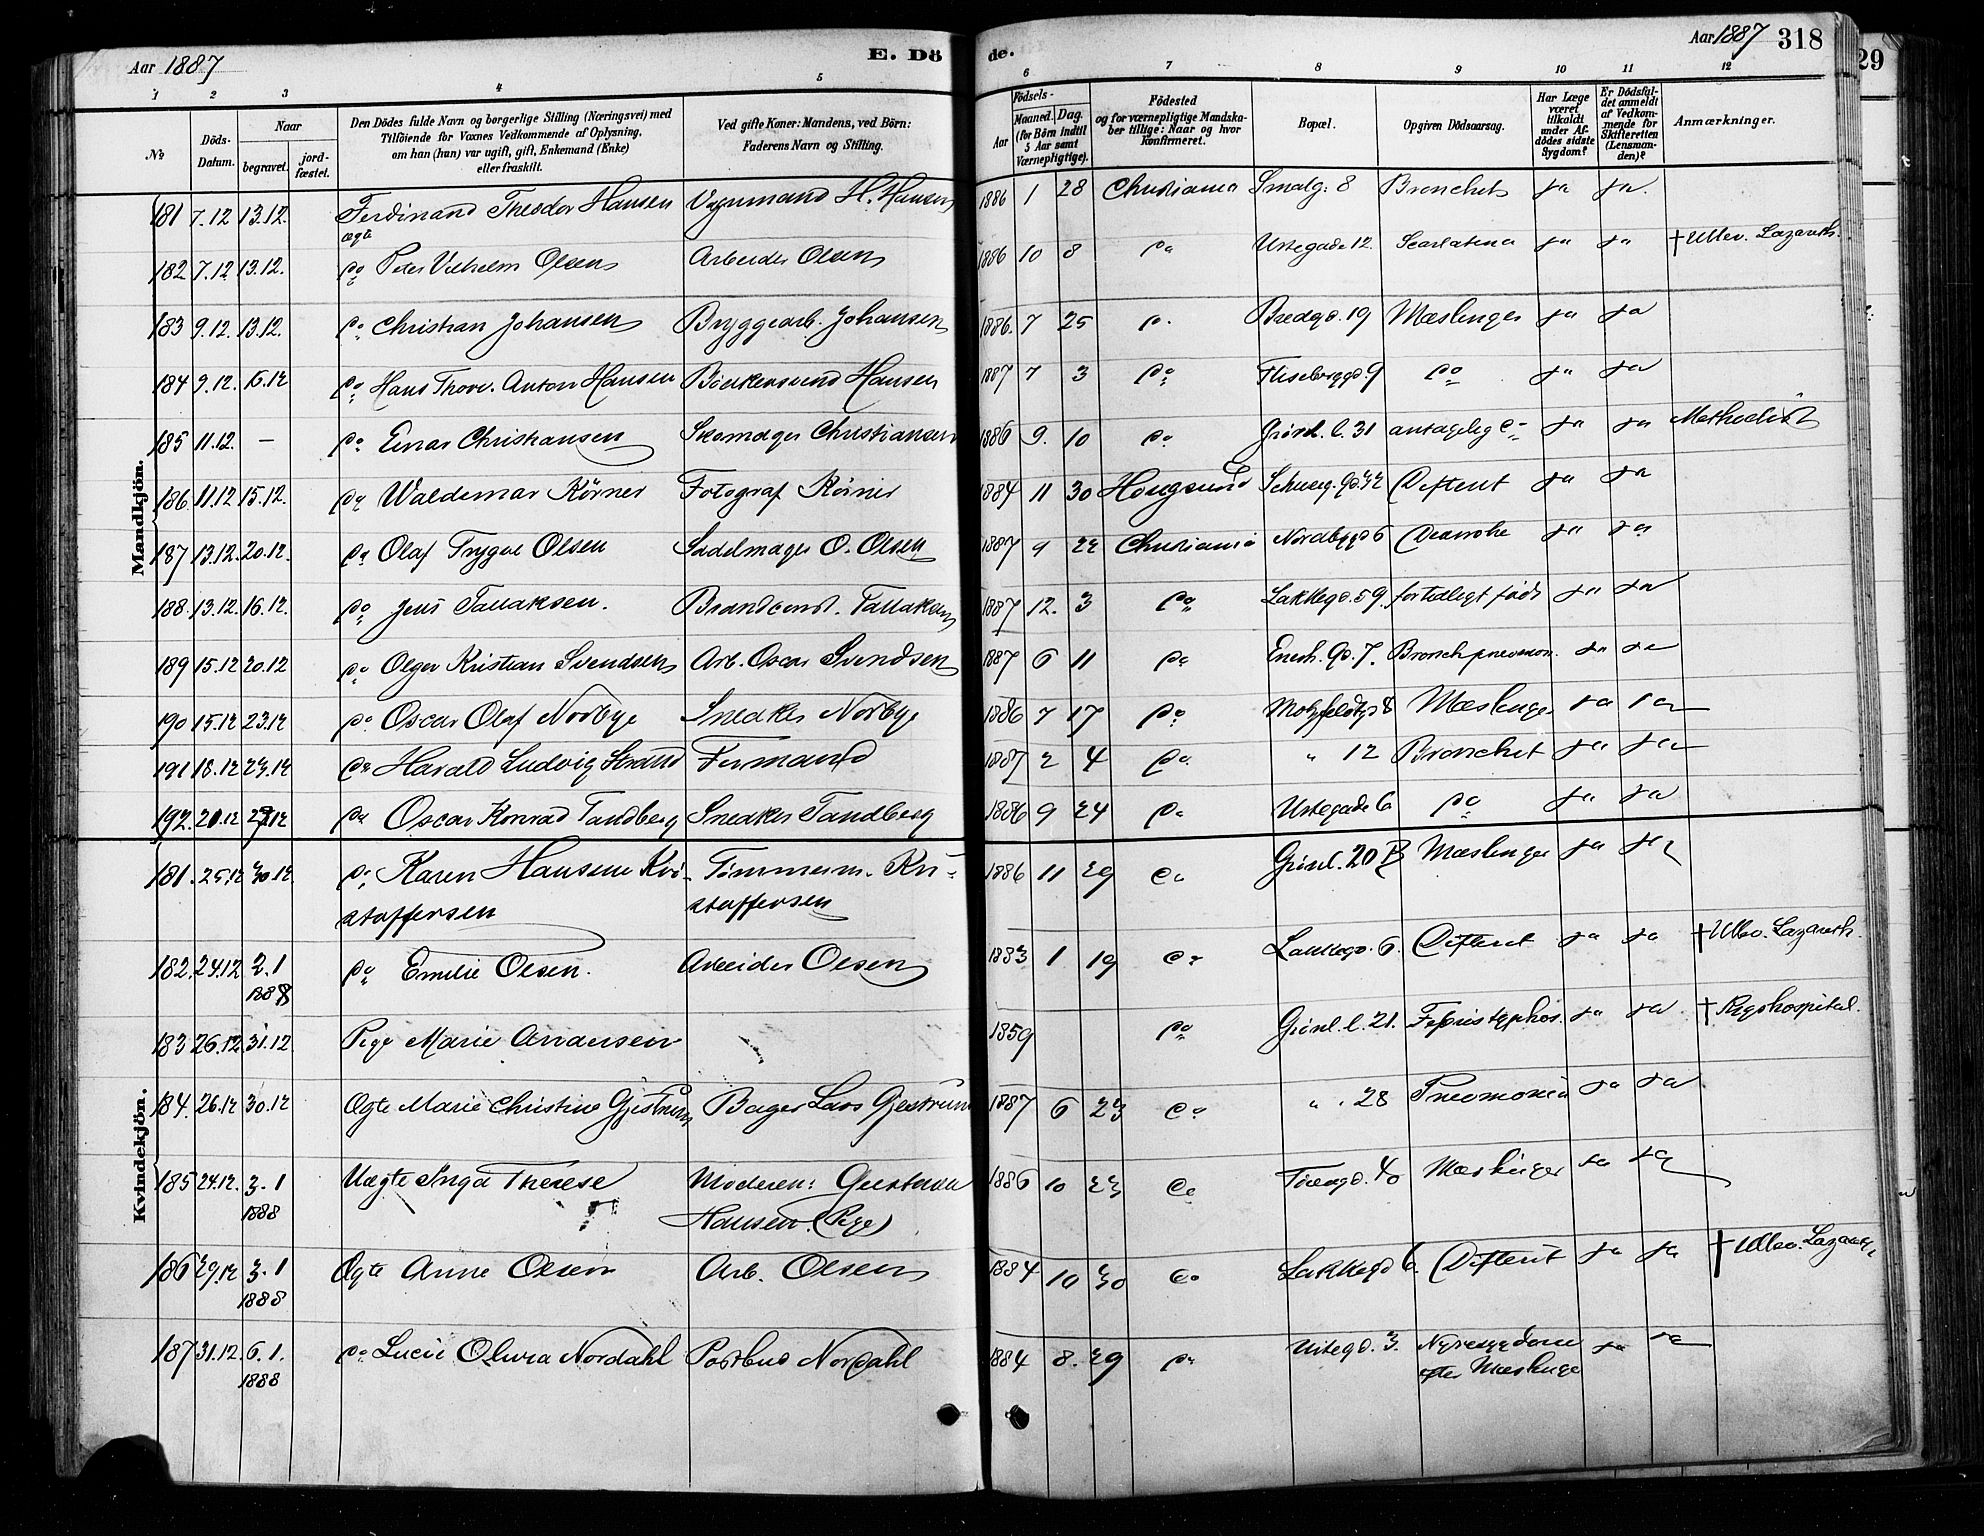 Aar 1887 E. Dö
de. Aar 1887 318
29
1 2 3 4 5 6 7 8 9 10 11 12
No.
Döds-Datum.
Naar
begravet.
jord-fæstet.
Den Dödes fulde Navn og borgerlige Stilling (Næringsvei) med
Tilföiende for Voxnes Vedkommende af Oplysning,
om han (hun) var ugift, gift, Enkemand (Enke)
eller fraskilt.
Ved gifte Koner: Mandens, ved Börn:
Faderens Navn og Stilling.
Födsels-
Aar
Maaned. Dag.
(for Börn indtil
5 Aar samt
Værnepligtige).
Födested
og for værnepligtige Mandska-
ber tillige: Naar og hvor
Konfirmeret.
Bopæl.
Opgiven Dödsaarsag.
Har Læge
været
tilkaldt
under Af-
dödes sidste
Sygdom?
Er Dödsfal-
det anmeldt
af Vedkom-
mende for
Skifteretten
(Lensman-
den)?
Anmærkninger.
Mandkjön.
181 7.12 13.12. Ferdinand Theodor Hansen Vognmand H. Hansen 1886 1 28 Christiania Smalg: 8 Bronchit ja ja
ægte
182 7.12 13.12. Do Peter Vilhelm Olsen Arbeider Olsen 1886 10 8 Do Urtegade 12. Scarlatina ja ja † Ullev. Lazareth.
183 9.12. 13.12. Do Christian Johansen Bryggearb. Johansen 1886. 7 25 Do Bredgd. 19 Mæslinger ja ja
184 9.12. 15.12 Do Hans Thorv. Anton Hansen Hansen 1887 7 3 Do Flisebyggd. 9 Do ja ja
185 11.12. — Do Einar Christiansen Skomager Christiansen 1886 9. 10 Do Grönl. l. 31 antagelig Do ja ja Methodist
186 11.12 15.12. Do Waldemar Körner Fotograf Körner 1884 11 30 Hougsund Schweig. Gd. 42 Difterit ja ja
187 13.12. 20.12. Do Olaf Trygve Olsen Sadelmager O. Olsen 1887 9 22 Christiania Nordbygd 6 Diarrohe ja ja
188. 13.12. 16.12. Do Jens Tallaksen. Brandconst. Tallaksen 1887 12. 3 Do Lakkegd. 59. fortidligt född ja ja
189 15.12 20.12 Do Olger Kristian Svendsen Arb. Oscar Svendsen 1887 6 11 Do Enerh. Gd. 7. Bronchpneumon. ja ja
190 15.12 23.12 Do Oscar Olaf Norbye Snedker Norbye 1886 7 17 Do Motzfeldtgd 8 Mæslinger ja ja
191 18.12 23.12 Do Harald Ludvig Strand Formand 1887 2 4 Do " 12 Bronchit ja ja
192. 20.12 27.12 Do Oscar Konrad Tandberg Snedker Tandberg 1886 9 24 Do Urtegade 6 Do ja ja
Kvindekjön.
181. 25.12 30.12 Do Karen Hansine Kri- Tömmerm. Kri- 1886 11 29 Do Grönl. 20 B Mæslinger ja ja
stoffersen stoffersen
182. 24.12 2.1 Do Emilie Olsen. Arbeider Olsen 1883 1 19 Do Lakkegd. 6. Difterit ja ja † Ullev. Lazareth.
1888
183 26.12 31.12 Pige Marie Amansen 1859 Do Grönl. l. 21. Febris typhos. ja ja † Rigshospital.
184. 26.12 30.12 Ægte Marie Christine Gjestrum Bager Lars Gjestrum 1887 6 23 Do " " 28 Pneumonia ja ja
185 24.12. 3.1 Uægte Inga Therese Moderen: Gustava 1886 10 23 Do Töiengd. 40 Mæslinger ja ja
1888 Hansen (Pige)
186 29.12 3.1 Ægte Anne Olsen Arb. Olsen 1884 10 30 Do Lakkegd 6. Difterit ja ja † Ullev. Lazareth
1888
187 31.12. 6.1. Do Lucie Olivia Nordahl Postbud Nordahl 1884 8. 29 Do Urtegd. 3. Nyresygdom ja ja
1888 efter Mæslinge